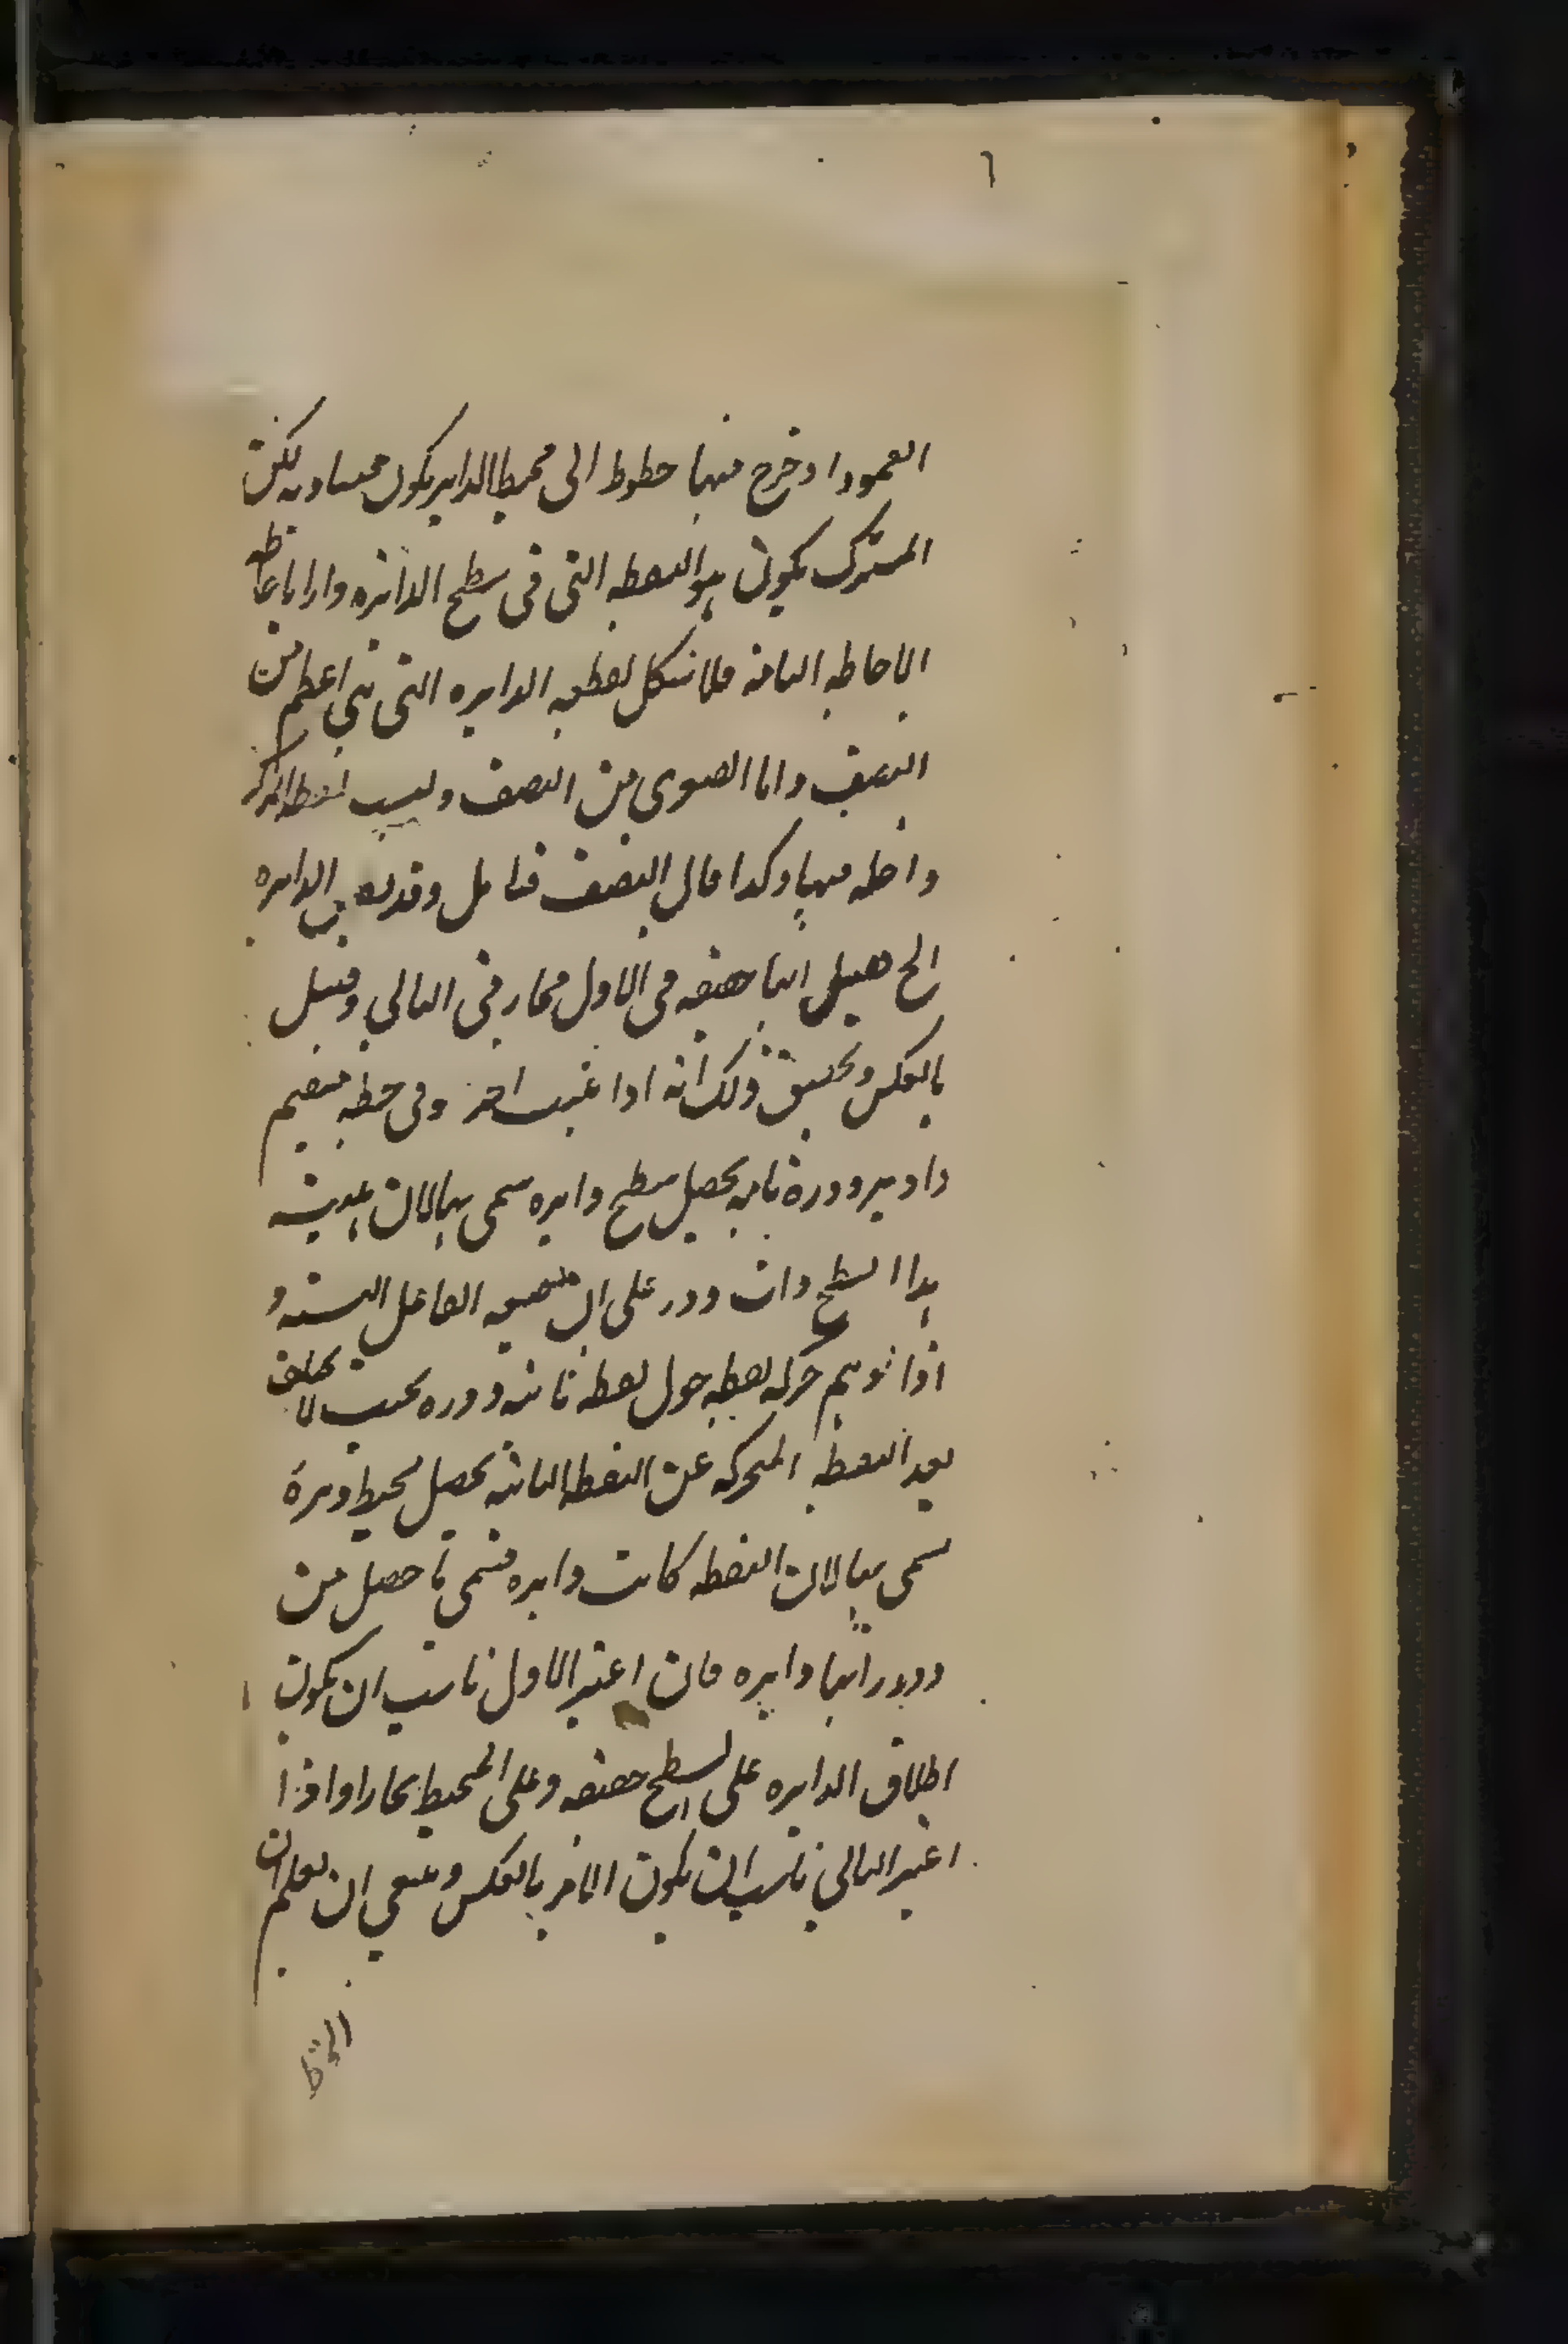 ٦
العمود اذ خرج منها خطوط الى محيط الدايره يكون متساويه لكن
المشترك يكون هو النقطه التى فى سطح الدائره واراباحاطه
الاحاطه التامه فلا يشكل بقطعه الدايره التى هى اعظم من
النصف واما الصغرى من النصف وليست نقطه المركز
داخله فيها وكذا مال النصف فتامل وقد يقال الدايره
الخ فقيل انها حقيقه فى الاول مجاز فى الثانى وقيل
بالعكس وتحقيق ذلك انه اذا اثبت احد طرفى خط مستقيم
وادير دورة تامه يحصل سطح دايره سمى بها لان هيئه
هذا السطح ذات دور على ان صيغه الفاعل للنسبه و
اذا توهم حركه نقطه حول نقطه ثابته دوره بحيث لا يختلف
بعد النقطه المتحركه عن النقطه الثابته يحصل محيط دايرة
سمى بها لان النقطه كانت دايره فسمى ما حصل من
دورانها دايره فان اعتبر الاول ناسب ان يكون
اطلاق الدايره على السطح حقيقه وعلى المحيط مجازا واذا
اعتبر الثانى ناسب ان يكون الامر بالعكس وينبغى ان يعلم ان
الخط